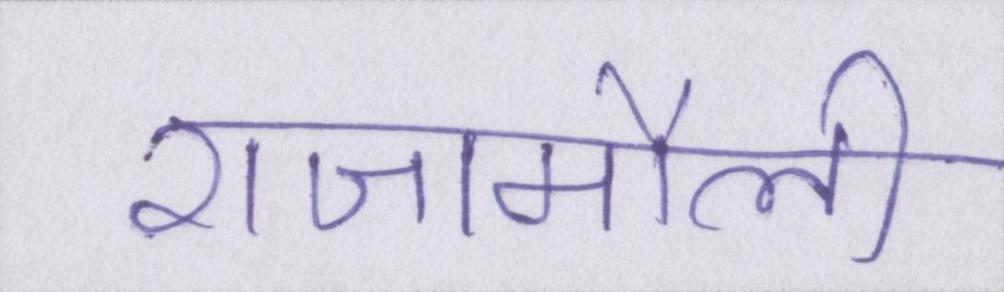 राजामौली